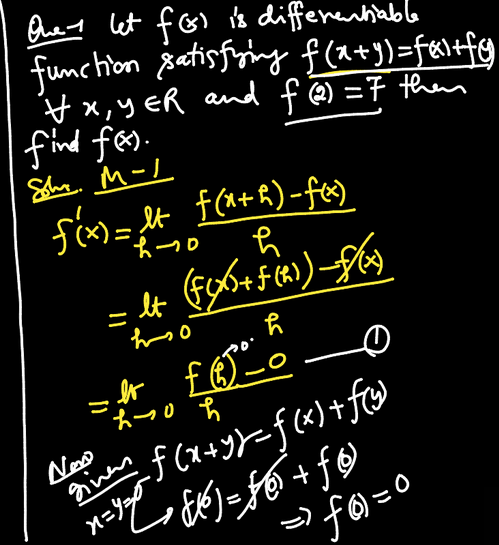 Que-1 let f(x) is differentiable
function satisfying f(x+y)=f(x)+f(y)
∀ x,y ∈R and f(2)=7 then
find f(x).
Soln. M-1
f'(x)= lt h→0 f(x+h)-f(x) / h
= lt h→0 (f(x)+f(h))-f(x) / h
= lt h→0 f(h)-0 / h —— ①
→0.
Now
given f(x+y)=f(x)+f(y)
x=y=0 ↳ f(0)=f(0)+f(0)
⇒ f(0)=0